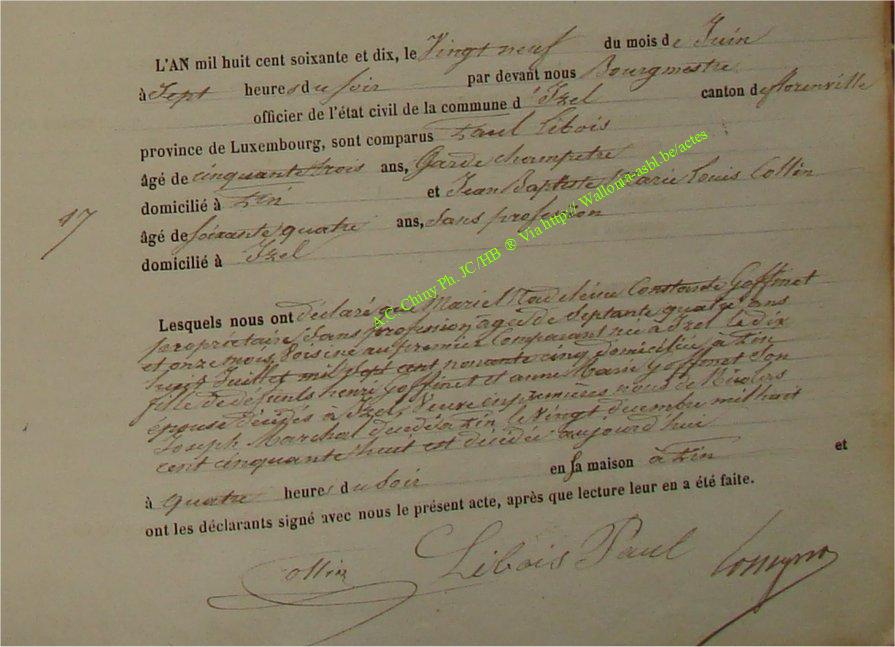 L'AN mil huit cent soixante et dix, le Vingt neuf du mois de Juin
à Sept heures du Soir par devant nous Bourgmestre
officier de l'état civil de la commune d'Izel canton de florenville
province de Luxembourg, sont comparus Paul Libois
âgé de cinquante trois ans, Garde champetre
domicilié à Pin et Jean Baptiste Marie Louis Collin
17
âgé de soixante quatre ans, Sans profession
domicilié à Izel
A.C.-Chiny Ph. JC/HB ® Via http:// Wallonia-asbl.be/actes
Lesquels nous ont déclaré que Marie Madeleine Constante Goffinet
propriétaire, Sans profession agée de Septante quatre ans
et onze mois, Voisine au premier Comparant née à Izel le dix
huit Juillet mil sept cent nonante cinq domiciliée à Pin
fille de defunts henri Goffinet et anne Marie Goffinet Son
epouse décédés à Izel, Veuve en premières noces de Nicolas
Joseph Marchal decedé a Pin le Vingt decembre mil huit
cent cinquante huit est décédée aujourd'hui
à quatre heures du Soir en sa maison à Pin et
ont les déclarants signé avec nous le présent acte, après que lecture leur en a été faite.
Collin Libois Paul